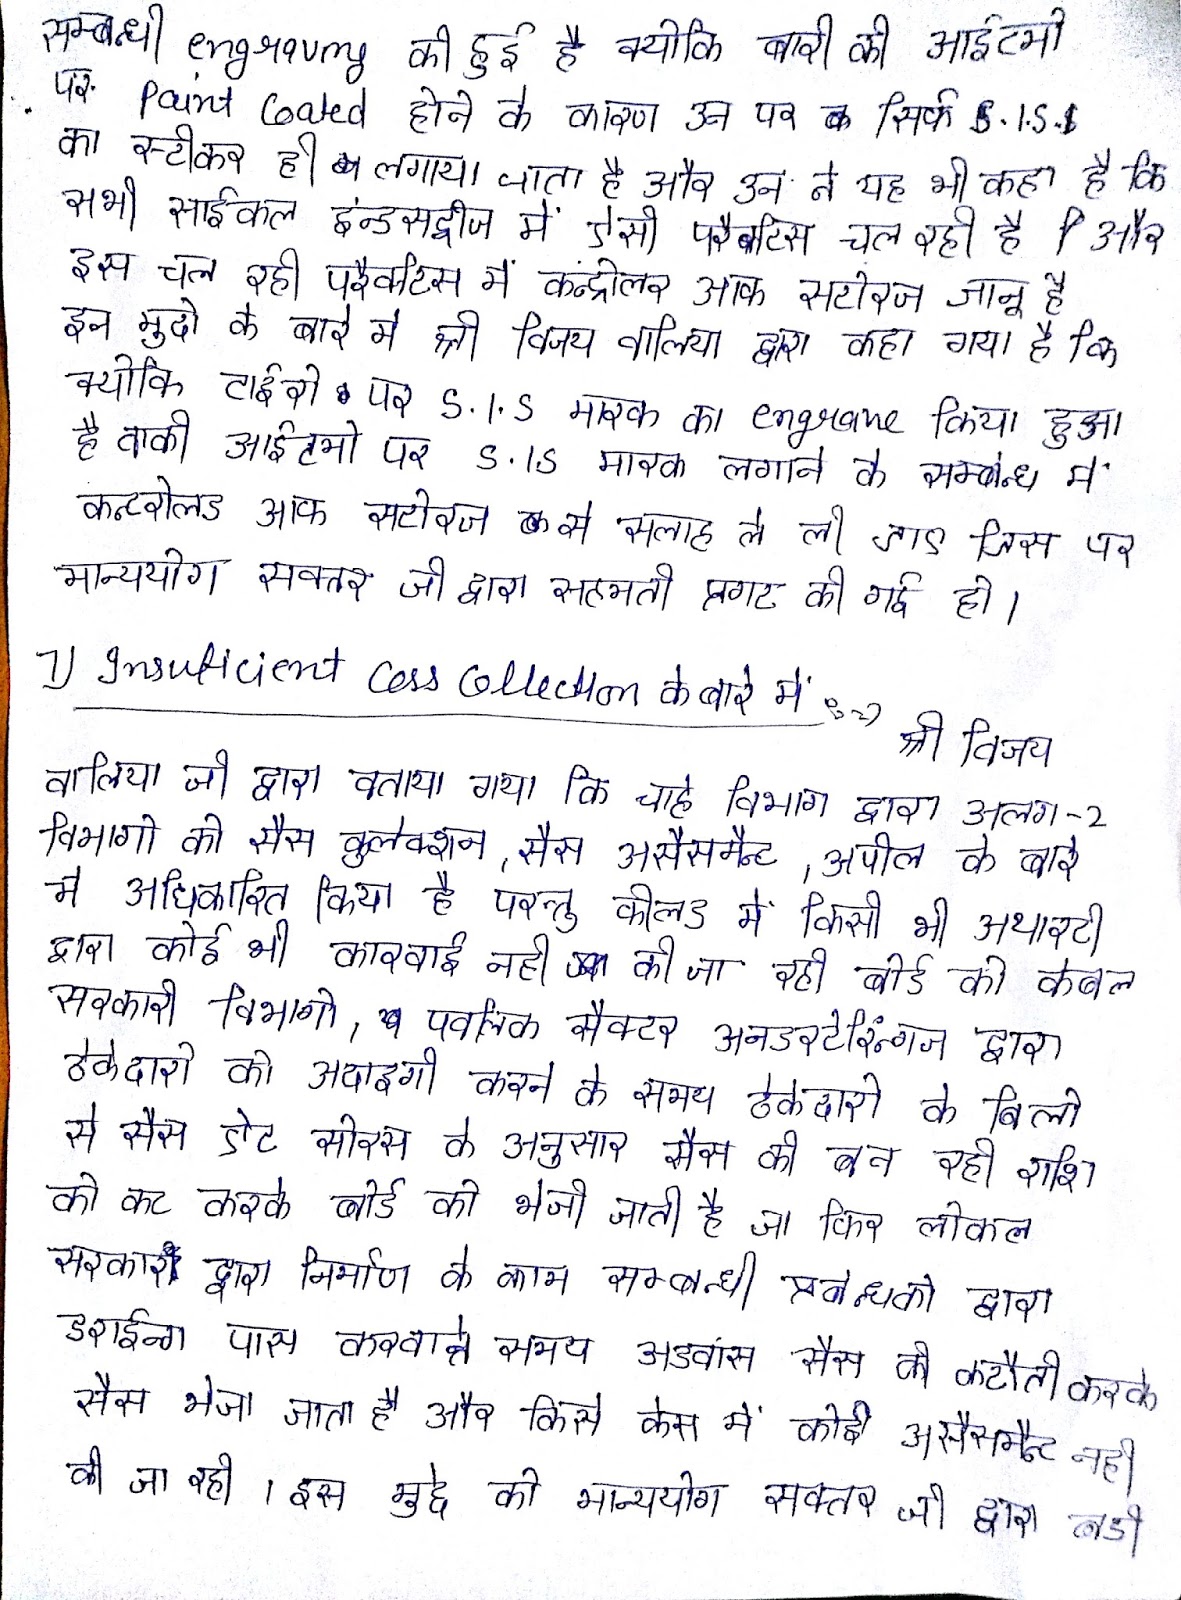 सम्बन्धी engraving की हुई है क्योकि बाकी की आईटमो
पर Paint Coated होने के कारण उन पर सिर्फ S.I.S.I
का स्टीकर ही लगाया जाता है और उन ने यह भी कहा है कि
सभी साईकल इंन्डसट्रीज में ऐसी परैक्टिस चल रही है और
इस चल रही परैक्टिस में कन्ट्रोलर आफ सटोरज जानू है
इन मुदो के बारे मे श्री विजय वालिया द्वारा कहा गया है कि
क्योकि टाईरो पर S.I.S मारक का engrave किया हुआ
है बाकी आईटमो पर S.IS मारक लगाने के सम्बन्ध में
कन्टरोलड आफ सटोरज से सलाह ले ली जाए जिस पर
मान्ययोग सक्तर जी द्वारा सहमती प्रगट की गई ही।
7) Insufficient Cess Collection के बारे में :-
श्री विजय
वालिया जी द्वारा बताया गया कि चाहे विभाग द्वारा अलग-2
विभागो को सैस कुलेक्शन, सैस असैसमैन्ट, अपील के बारे
मे अधिकारित किया है परन्तु फीलड में किसी भी अथारटी
द्वारा कोई भी कारवाई नही की जा रही बोर्ड को केबल
सरकारी विभागो, पबलिक सैक्टर अनडरटेरिंन्गज द्वारा
ठेकेदारो को अदाइगी करने के समय ठेकेदारो के बिलो
से सैस ऐट सोरस के अनुसार सैस की बन रही राशि
को कट करके बोर्ड को भेजी जाती है जा फिर लोकल
सरकार द्वारा निर्माण के काम सम्बन्धी प्रबन्धको द्वारा
डराईन्ग पास करवाने समय अडवांस सैस की कटौती करके
सैस भेजा जाता है और किसे केस में कोई असैसमैन्ट नही
की जा रही। इस मुद्दे को मान्ययोग सक्तर जी द्वारा बडी